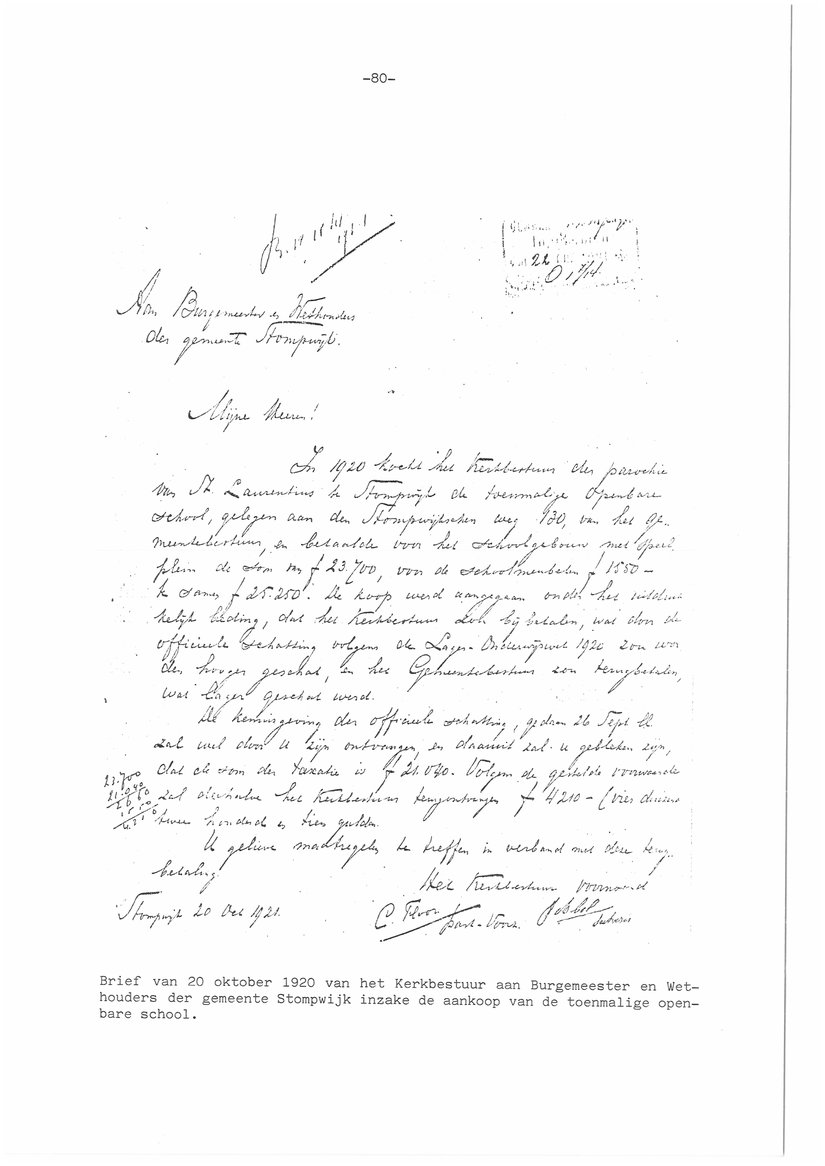 -80-
22
Aan Burgemeester en Wethouders
der gemeente Stompwijk.
Mijne Heeren!
In 1920 kocht het Kerkbestuur der parochie
van St. Laurentius te Stompwijk de toenmalige Openbare
school, gelegen aan den Stompwijkschen weg 130, van het Ge-
meentebestuur, en betaalde voor het schoolgebouw met speel-
plein de som van f 23.700, voor de schoolmeubelen f 1550 -
te samen f 25.250. De koop werd aangegaan onder het uitdruk-
kelijk beding, dat het Kerkbestuur zou bijbetalen, wat door de
officieele schatting volgens de Lager-Onderwijswet 1920 zou wor
den hooger geschat, en het Gemeentebestuur zou terugbetalen,
wat lager geschat werd.
De kennisgeving der officieele schatting, gedaan 26 Sept ll
zal wel door U zijn ontvangen, en daaruit zal u gebleken zijn,
dat de som der taxatie is f 21.040. Volgens de gestelde voorwaarde
zal derhalve het Kerkbestuur terugontvangen f 4210 - (vier duizend
twee honderd en tien gulden.
23.700
21.040
2660
1550
4210
U gelieve maatregelen te treffen in verband met deze terug-
betaling.
Het Kerkbestuur voornoemd
Stompwijk 20 Oct 1921.
C.
Brief van 20 oktober 1920 van het Kerkbestuur aan Burgemeester en Wet-
houders der gemeente Stompwijk inzake de aankoop van de toenmalige open-
bare school.